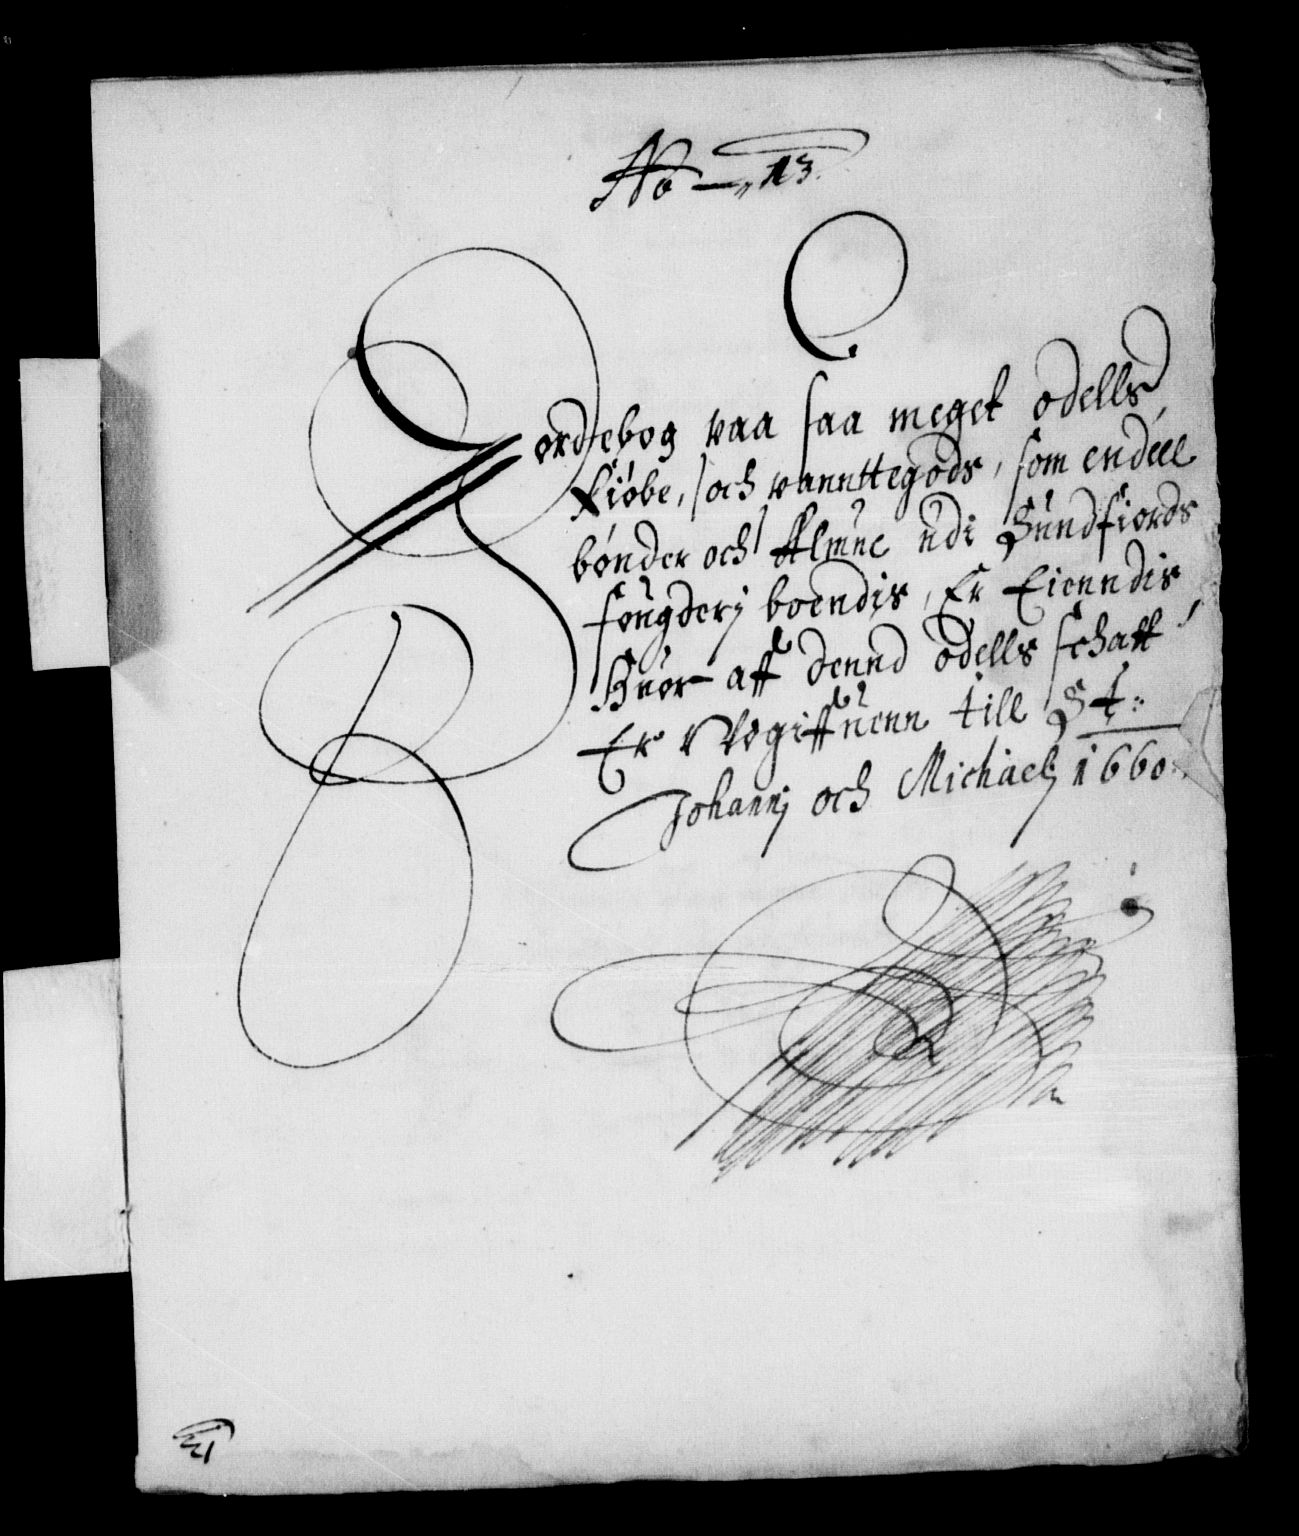 No — 13.
Jordebog paa saa meget odells
Kiøbe, och pannttegods, som endeel
bønder och Almue udi Sundfiords
fougderj boendis, Er Eienndis
Huor aff dennd odells schatt
Er Udgiffuenn till St:
Johannj och Michaelj 1660.